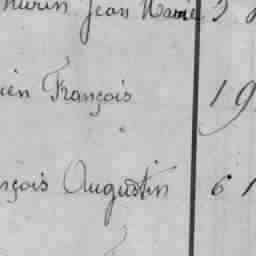 Jean Marie 2
ien François 19
nçois Augustin 61